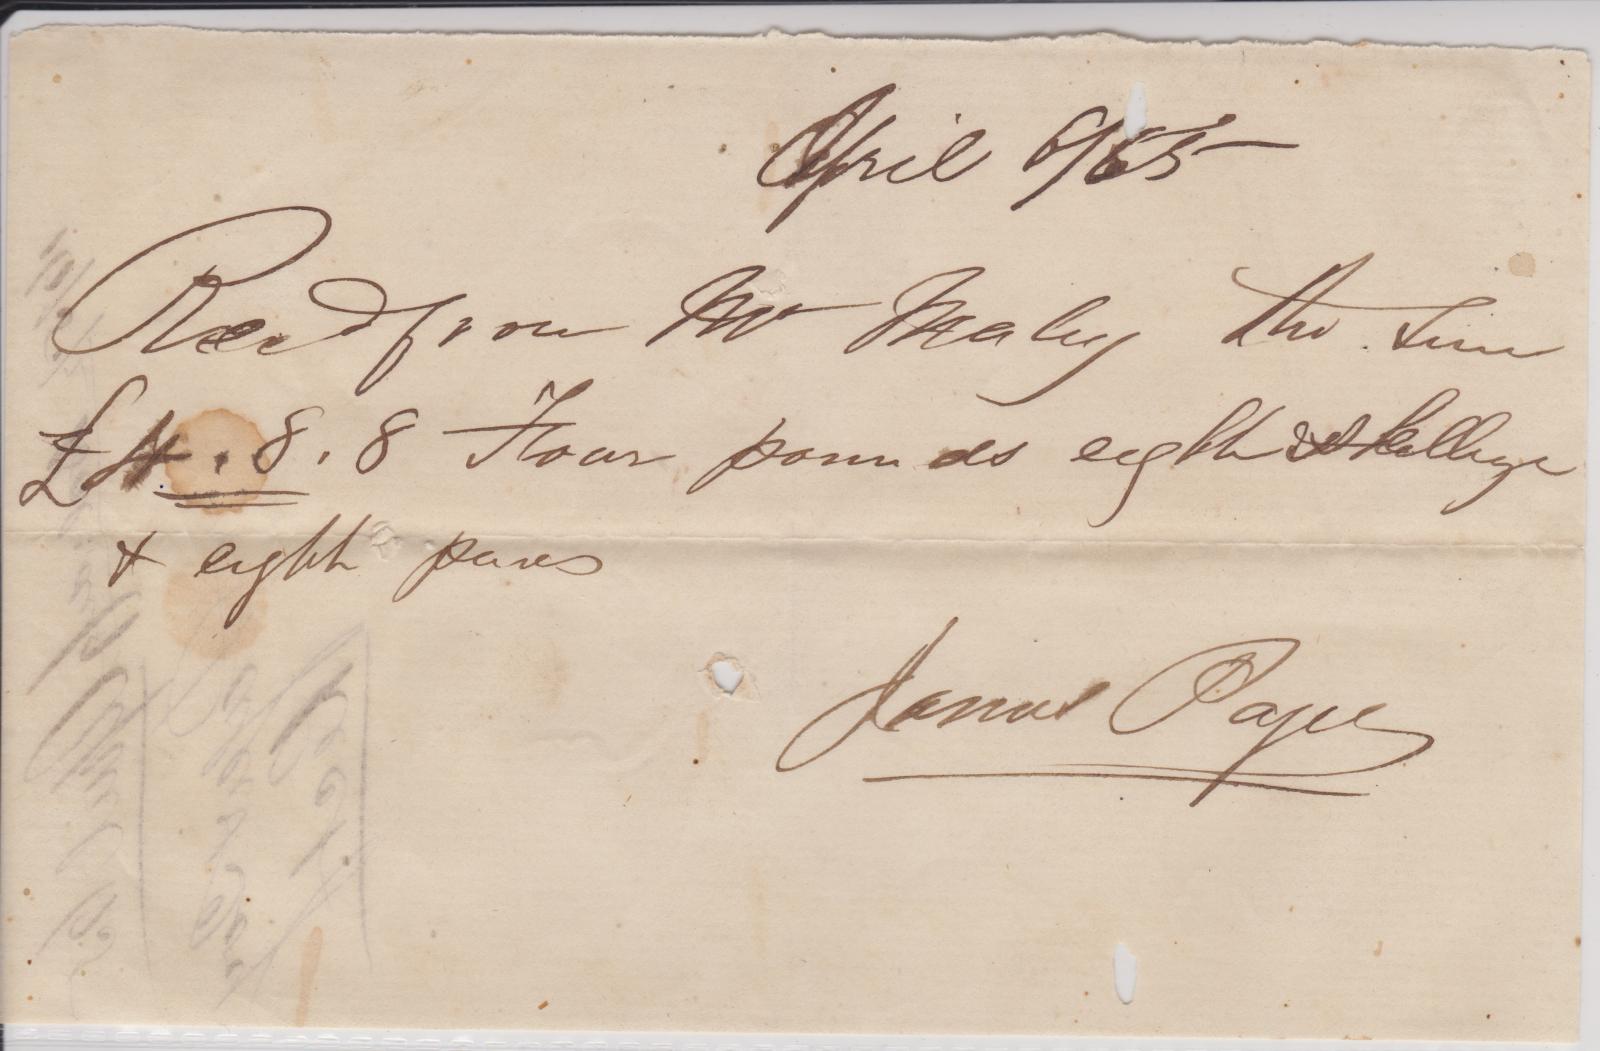 April 6/65
Recd from Mr Mealey the sum
£4.8.8 Four pounds eight shillings
& eight pence
James Pape